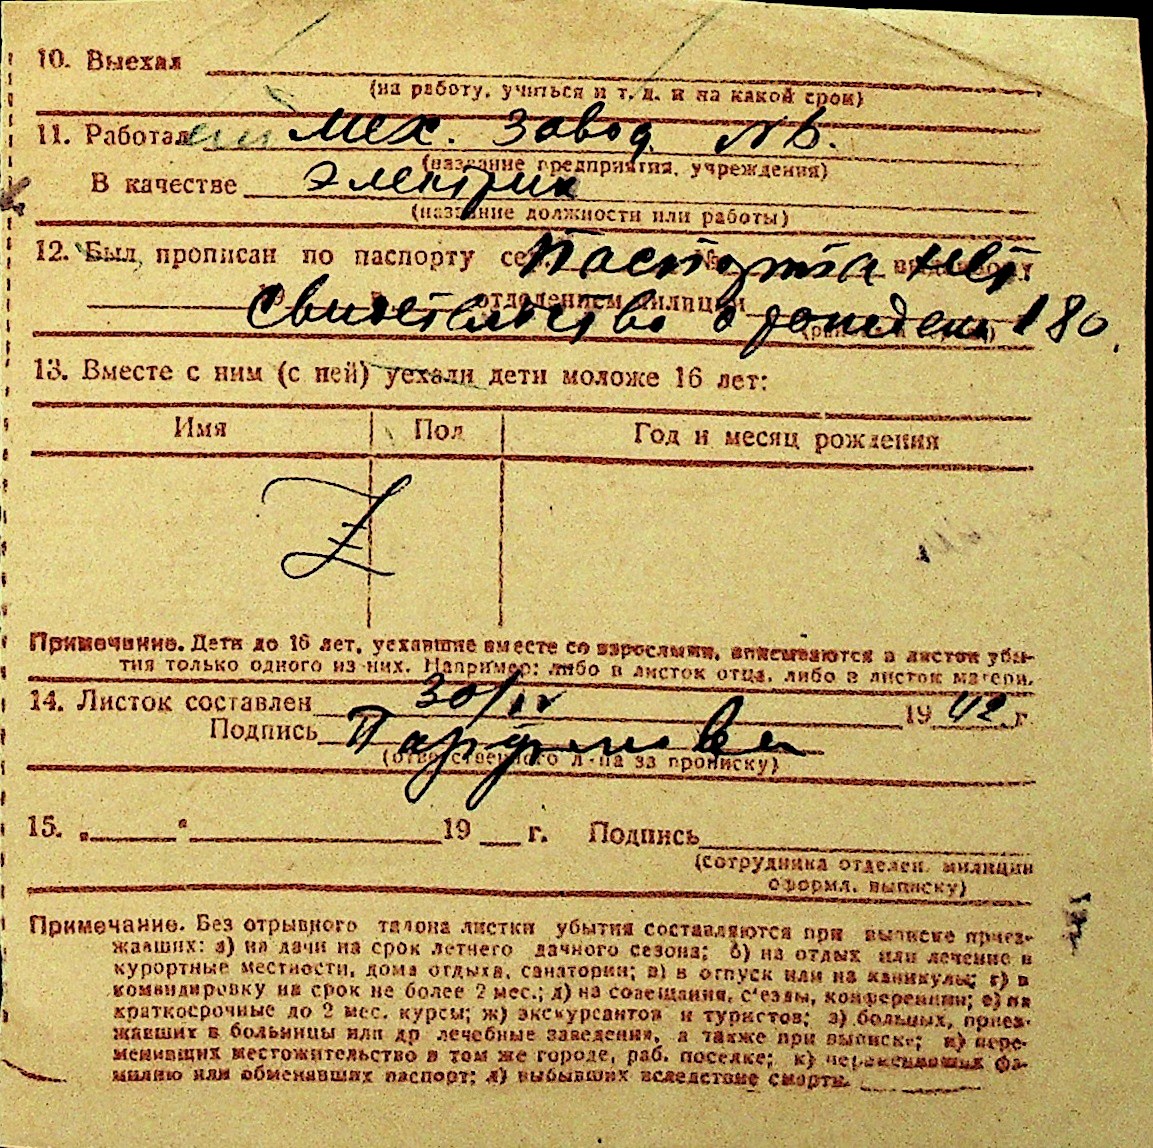 10. Выехал
(на работу, учиться и т. д. и на какой срок)
11. Работал мех. завод
(название предприятия, учреждения)
В качестве электрик
(название должности или работы)
12. Был прописан по паспорту сер. паспорта нет
19 г. отделением милиции
Свидетельство о рожден 180
13. Вместе с ним (с ней) уехали дети моложе 16 лет:
Имя Пол Год и месяц рождения
Z
Примечание. Дети до 16 лет, уехавшие вместе со взрослыми, вписываются в листок убы-
тия только одного из них. Например: либо в листок отца, либо в листок матери.
14. Листок составлен 30/IV 1942 г.
Подпись
(ответственного л-ца за прописку)
15. „ “ 19 г. Подпись
(сотрудника отделен. милиции
оформл. выписку)
Примечание. Без отрывного талона листки убытия составляются при выписке приез-
жавших: а) на дачи на срок летнего дачного сезона; б) на отдых или лечение в
курортные местности, дома отдыха, санатории; в) в отпуск или на каникулы; г) в
командировку на срок не более 2 мес.; д) на совещания, с'езды, конференции; е) на
краткосрочные до 2 мес. курсы; ж) экскурсантов и туристов; з) больных, приез-
жавших в больницы или др лечебные заведения, а также при выписке; и) пере-
менивших местожительство в том же городе, раб. поселке; к) переменивших фа-
милию или обменявших паспорт; л) выбывших вследствие смерти.